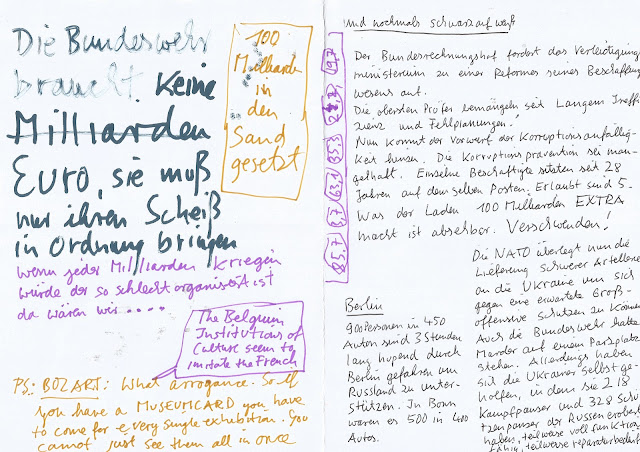 Die Bundeswehr
braucht keine
Milliarden
Euro, sie muß
nur ihren Scheiß
in Ordnung bringen
wenn jeder Milliarden Kriegen
würde der so schlecht organisiert ist
da wären wir ....
100
Milliarden
in
den
Sand
gesetzt
The Belgium
Institutions of
Culture seem to
imitate the French
PS: BOZART: What arrogance. So if
you have a MUSEUMCARD you have
to come for every single exhibition. You
cannot just see them all in once
und nochmals schwarz auf weiß
Der Bundesrechnungshof fordert das Verteidigungs
ministerium zu einer Reformes seines Beschaffungs
wesens auf.
Die obersten Prüfer bemängeln seit Langem Ineffi
zienz und Fehlplanungen!
Nun kommt der Vorwurf der Korruptionsanfällig-
keit hinzu. Die Korruptionsprävention sei man-
gelhaft. Einzelne Beschäftigte säßen seit 28
Jahren auf demselben Posten. Erlaubt sind 5.
Was der Laden 100 Milliarden EXTRA
macht ist absehbar. Verschwenden!
85,7
63,1
35,3
19,7
Berlin
900 Personen in 450
Autos sind 3 Stunden
lang hupend durch
Berlin gefahren um
Russland zu unter-
stützen. In Bonn
waren es 500 in 400
Autos.
Die NATO überlegt nun die
Lieferung schwerer Artellerie
an die Ukraine um sich
gegen eine erwartete Groß-
offensive schützen zu können
Auch die Bundeswehr hätte
Marder auf einem Parkplatz
stehen. Allerdings haben
sich die Ukrainer selbst ge-
holfen, in dem sie 218
Kampfpanzer und 328 Schü
tzenpanzer der Russen erobert
haben, teilweise voll funktions
fähig, teilweise reparaturbedürf